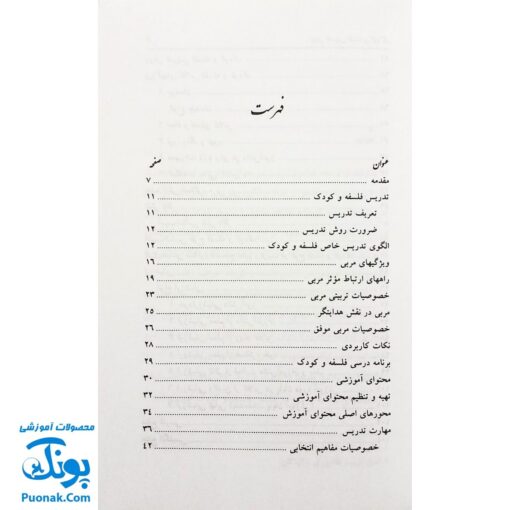 فهرست
عنوان صفحه
مقدمه ........ ۷
تدریس فلسفه و کودک ........ ۱۱
تعریف تدریس ........ ۱۱
ضرورت روش تدریس ........ ۱۲
الگوی تدریس خاص فلسفه و کودک ........ ۱۲
ویژگیهای مربی ........ ۱۶
راههای ارتباط مؤثر مربی ........ ۱۹
خصوصیات تربیتی مربی ........ ۲۳
مربی در نقش هدایتگر ........ ۲۵
خصوصیات مربی موفق ........ ۲۶
نکات کاربردی ........ ۲۸
برنامه درسی فلسفه و کودک ........ ۲۹
محتوای آموزشی ........ ۳۰
تهیه و تنظیم محتوای آموزشی ........ ۳۲
محورهای اصلی محتوای آموزش ........ ۳۴
مهارت تدریس ........ ۳۶
خصوصیات مفاهیم انتخابی ........ ۴۲
محصولات آموزشی
پونک
Puonak.Com